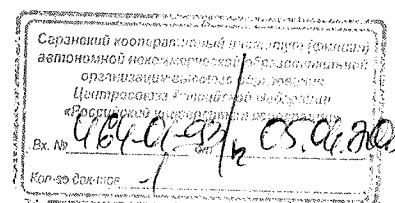 Саранский кооперативный институт (филиал)
автономной некоммерческой образовательной
организации высшего образования
Центросоюза Российской Федерации
«Российский университет кооперации»
Вх. № от 05.04.
Кол-во док-тов 1